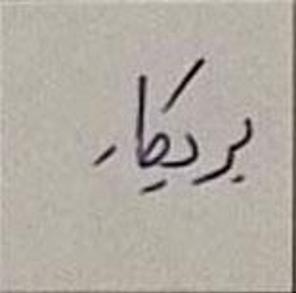 بریکار